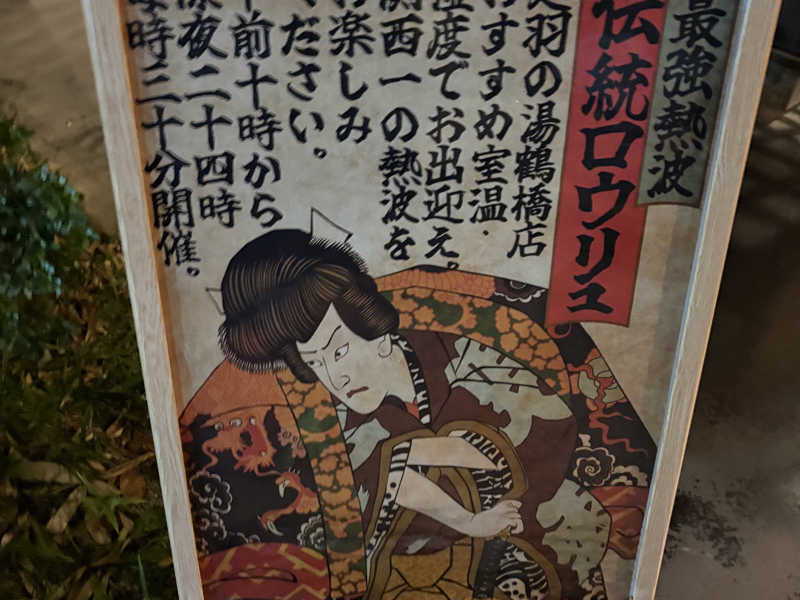 最強熱波
伝統ロウリュ
羽の湯鶴橋店
おすすめ室温・
湿度でお出迎え。
関西一の熱波を
お楽しみ
ください。
午前十時から
深夜二十四時
毎時三十分開催。